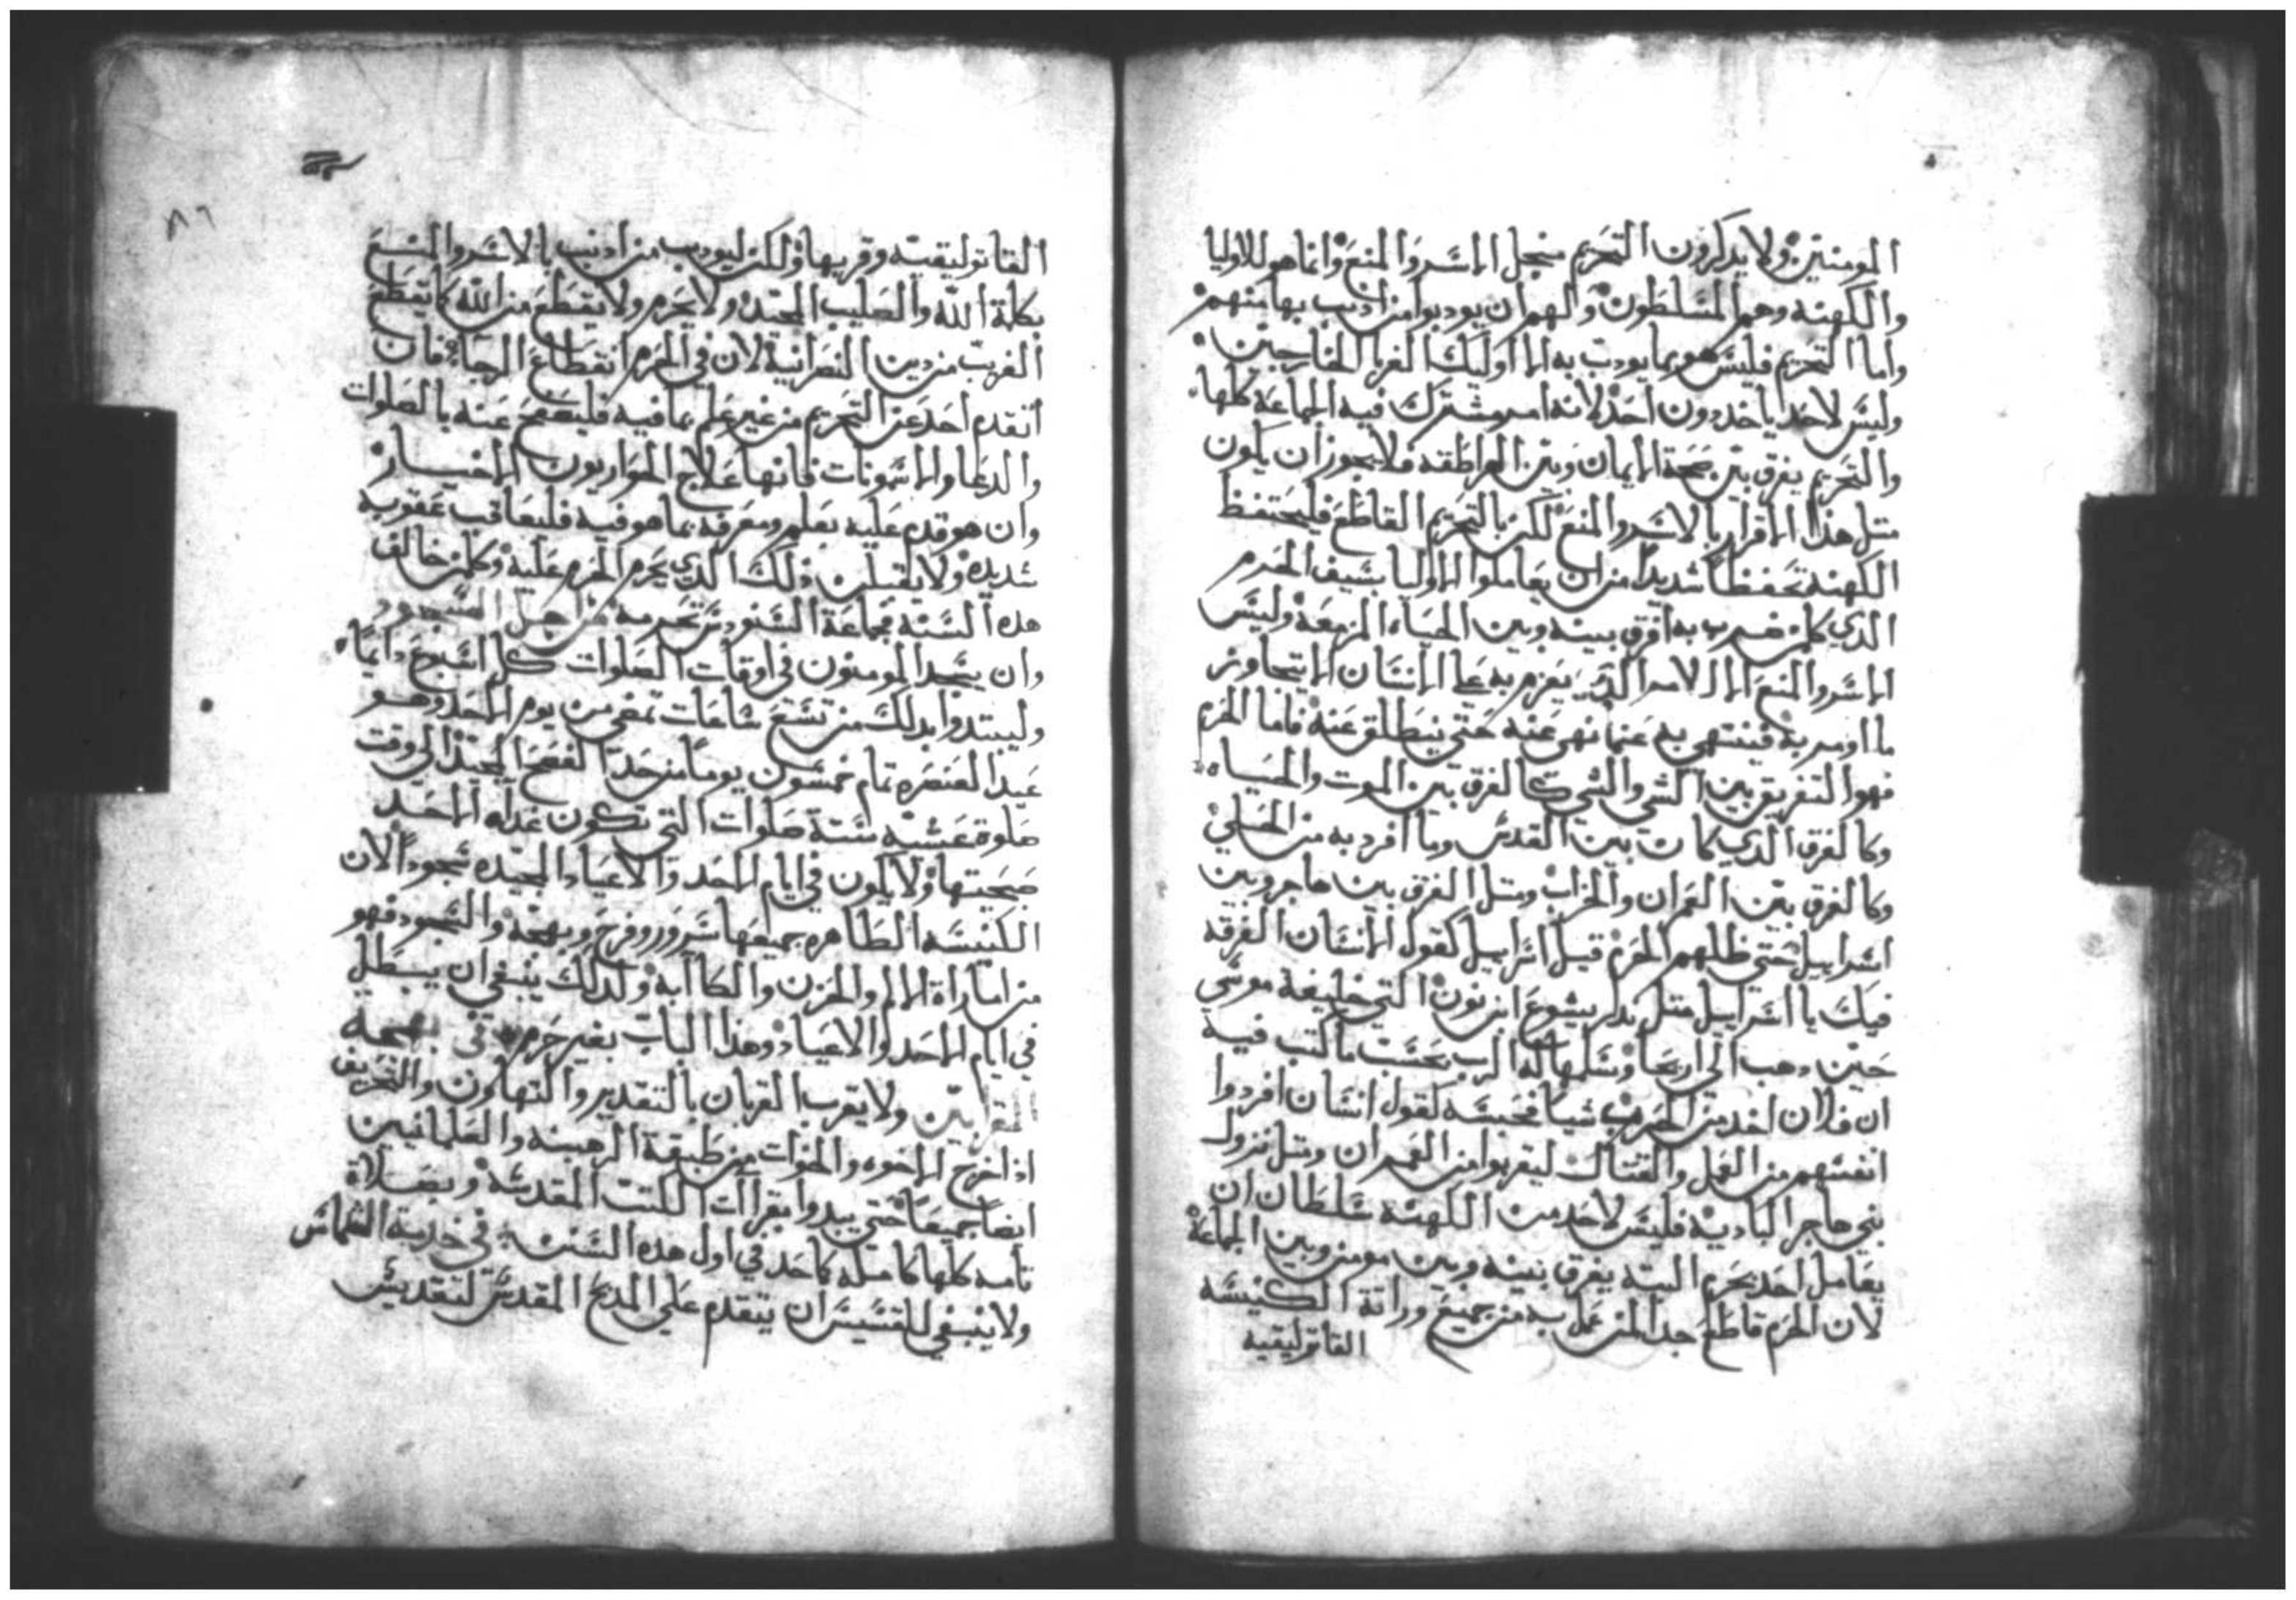 المومنين ولا يذكرون التحريم منجل الاسر والمنع وانما هو للاوليا
والكهنه وهم المسلطون ولهم ان يودبوا من اذنب بها منهم
واما التحريم فليس هو مما يودب به الا اوليك الغربا الخارجين
وليس لاحد ياخد دون احد لانه امر مشترك فيه الجماعة كلها
والتحريم يفرق بين صحة الايمان وبين الهراطقه فلا يجوز ان يكون
مثل هذا الاقرار بالاسر والمنع لكن بالتحريم القاطع فليحتفظ
الكهنة تحفظا شديدا من ان يعاملوا الاوليا بسيف الحرم
الذي كلمن ضرب به افرق بينه وبين الحياه المزمعة وليس
الاسر والمنع الا الامر الذي يعزم به على الانسان الا يتجاوز
ما اومر به فينتهي به عنما نهي عنه حتى ينطلق عنه فاما الحرم
فهو التفريق بين الشي والشي كالفرق بين الموت والحياه
وكالفرق الذي كان بين القدس وما افرد به من الحلي
وكالفرق بين العمران والخراب ومثل الفرق بين هاجر وبين
اسراييل حتى ظلهم الحرم قيل اسراييل كقول الانسان الفرقه
فيك يا اسراييل مثل بدكر يشوع ابن نون التي خليفة موسى
حين دهب الى اريحا وسلمها له الرب بحسب ما كتب فيه
ان فلان اخد من الحرم شيا فحبسه كقول انسان افردوا
انفسهم من العمل والقتال ليقربوا من العمران ومثل نزول
بني هاجر البادية فليس لاحد من الكهنة سلطان ان
يعامل احد بحرم البتة يفرق بينه وبين مومن وبين الجماعة
لان الحرم قاطع جدا لمن عمل به من جميع وراثة الكنيسه
القاتوليقيه
٨٦
القاتوليقيه وقربها ولكن ليودب من اذنب بالاسر والمنع
بكلمة الله والصليب المجيد ولا يحرم ولا يقطع من الله كما يقطع
الغريب من دين النصرانية لان في الحرم انقطاع الرجا فان
اتقدم احد عن التحريم من غير علم بما فيه فليصفح عنه بالصلوات
والدعا والاشمونات فانها علاج الحواريون الاخيار
وان هو قدم عليه بعلم ومعرفه بما هو فيه فليعاقب عقوبه
شديده ولا يقبلن ذلك الذي يحرم الحرم عليه وكلمن خالف
هده السنة فجماعة السنودس تحرمه من اجل السجود
وان يسجد المومنون في اوقات الصلوات كل اسبوع دايما
وليبتدوا بدلك من تسع ساعات تمضي من يوم الاحد وهو
عيد العنصره تمام خمسون يوما من حد الفصح المجيد الى وقت
صلوة عشية ستة صلوات التي تكون غداه الاحد
صحيتها ولا يكون في ايام الاحد والاعياد المجيده سجودا لان
الكنيسه الطاهره جميعها سرور وفرح وبهجة والسجود فهو
من اماراة الالم والحزن والكاابه ولدلك ينبغي ان يبطل
في ايام الاحد والاعياد وهذا الباب بغير حرم في بهجه
القرابين ولا يقرب القربان بالتقدير والتهاون والتحريف
اذا خرج الاخوه والاخوات من طبقة الرهبنه والعلمانيين
ايضا جميعا حتى يبدوا بقراات الكتب المقدسة وبصلاة
تامه كلها كاملة كاحد في اول هده السنن في خدمة الشماس
ولا ينبغي للقسيس ان يتقدم على المدبح المقدس لتقديس